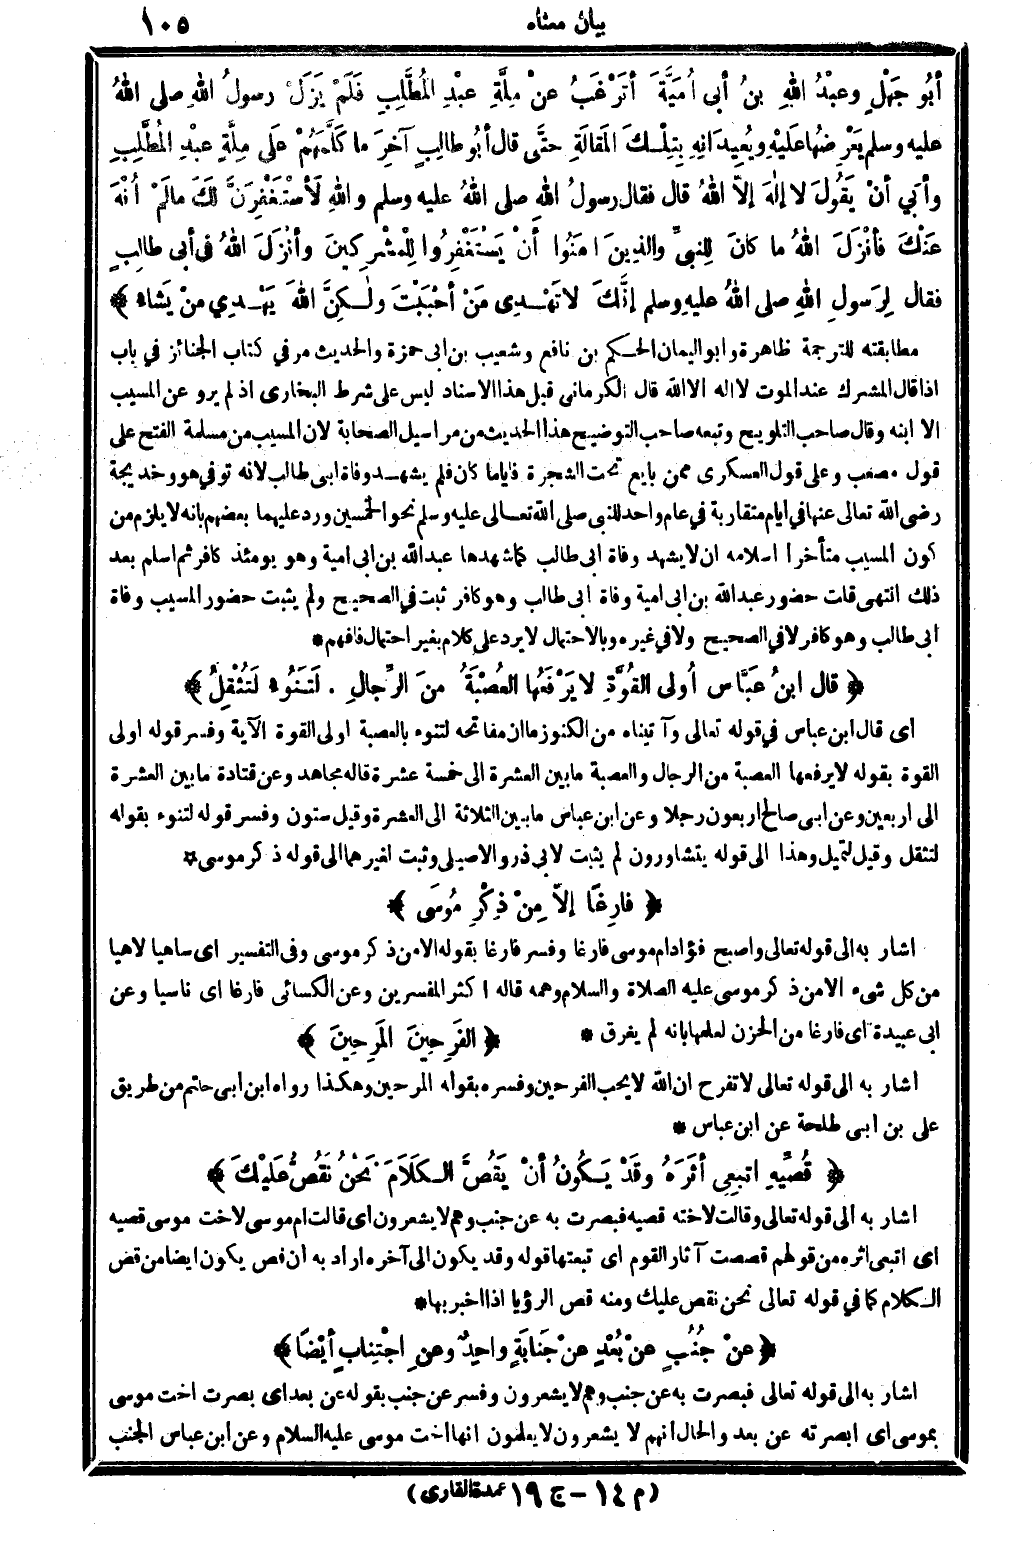 بيان معناه ١٠٥
أبُو جَهْلٍ وعبْدُ اللهِ بنُ أبى أُمَيَّةَ أتَرْغَبُ عنْ مِلَّةِ عبْدِ المُطَّلِبِ فَلَمْ يَزَلْ رسولُ اللهِ صلى اللهُ
عليه وسلم يَعْرِضُها عَليْهِ ويُعِيدَانِهِ بِتِلْكَ المَقالَةِ حتَّى قال أبُو طالِبٍ آخِرَ ما كَلَّمَهُمْ عَلَى مِلَّةِ عبْدِ المُطَّلِبِ
وأبَي أنْ يَقُولَ لا إلٰهَ إلاَّ اللهُ قال فقال رسولُ اللهِ صلى اللهُ عليه وسلم واللهِ لَأسْتَغْفِرَنَّ لَكَ مالَمْ أُنْهَ
عَنْكَ فأنْزَلَ اللهُ ما كانَ لِلنبيِّ والذِينَ آمَنُوا أنْ يَسْتَغْفِرُوا لِلْمُشْرِكِينَ وأنْزَلَ اللهُ فى أبى طالِبٍ
فقال لِرَسولِ اللهِ صلى اللهُ عليهِ وسلم إنَّكَ لا تَهْدِى مَنْ أحْبَبْتَ ولٰكِنَّ اللهَ يَهْدِي منْ يَشاءُ ﴾
مطابقته للترجمة ظاهرة وابو اليمان الحكم بن نافع وشعيب بن ابى حمزة والحديث مر في كتاب الجنائز في باب
اذا قال المشرك عند الموت لا اله الا الله قال الكرمانى قبل هذا الاسناد ليس على شرط البخارى اذ لم يرو عن المسيب
الا ابنه وقال صاحب التلويح وتبعه صاحب التوضيح هذا الحديث من مراسيل الصحابة لان المسيب من مسلمة الفتح على
قول مصعب وعلى قول العسكرى ممن بايع تحت الشجرة فاياما كان فلم يشهد وفاة ابى طالب لانه توفي هو وخديجة
رضى الله تعالى عنها في ايام متقاربة في عام واحد للنبى صلى الله تعالى عليه وسلم نحو الخمسين ورد عليهما بعضهم بانه لا يلزم من
كون المسيب متأخرا اسلامه ان لا يشهد وفاة ابى طالب كما شهدها عبد الله بن ابى امية وهو يومئذ كافر ثم اسلم بعد
ذلك انتهى قلت حضور عبد الله بن ابى امية وفاة ابى طالب وهو كافر ثبت في الصحيح ولم يثبت حضور المسيب وفاة
ابى طالب وهو كافر لا في الصحيح ولا في غيره وبالاحتمال لا يرد على كلام بغير احتمال فافهم *
﴿ قال ابنُ عبَّاس أُولى القُوَّةِ لا يَرْفَعُها العُصْبَةُ منَ الرِّجالِ . لَتَنُوءُ لَتُثْقِلُ ﴾
اى قال ابن عباس في قوله تعالى وآتيناه من الكنوز ما ان مفاتحه لتنوء بالعصبة اولى القوة الآية وفسر قوله اولى
القوة بقوله لا يرفعها العصبة من الرجال والعصبة ما بين العشرة الى خمسة عشرة قاله مجاهد وعن قتادة ما بين العشرة
الى اربعين وعن ابى صالح اربعون رجلا وعن ابن عباس ما بين الثلاثة الى العشرة وقيل ستون وفسر قوله لتنوء بقوله
لتثقل وقيل لتميل وهذا الى قوله يتشاورون لم يثبت لابى ذر والاصيلى وثبت لغيرهما الى قوله ذكر موسى *
﴿ فارِغًا إلاَّ مِنْ ذِكْرِ مُوسَى ﴾
اشار به الى قوله تعالى واصبح فؤاد ام موسى فارغا وفسر فارغا بقوله الا من ذكر موسى وفى التفسير اى ساهيا لاهيا
من كل شىء الا من ذكر موسى عليه الصلاة والسلام وهمه قاله اكثر المفسرين وعن الكسائى فارغا اى ناسيا وعن
ابى عبيدة اى فارغا من الحزن لعلمها بانه لم يغرق * ﴿ الفَرِحِينَ المَرِحِينَ ﴾
اشار به الى قوله تعالى لا تفرح ان الله لا يحب الفرحين وفسره بقوله المرحين وهكذا رواه ابن ابى حاتم من طريق
على بن ابى طلحة عن ابن عباس *
﴿ قُصِّيهِ اتبعِى أثَرَهُ وقَدْ يَكُونُ أنْ يَقُصَّ الكَلاَمَ نَحْنُ نَقُصُّ عَليْكَ ﴾
اشار به الى قوله تعالى وقالت لاخته قصيه فبصرت به عن جنب وهم لا يشعرون اى قالت ام موسى لاخت موسى قصيه
اى اتبعى اثره من قولهم قصصت آثار القوم اى تبعتها قوله وقد يكون الى آخره اراد به ان قص يكون ايضا من قص
الكلام كما في قوله تعالى نحن نقص عليك ومنه قص الرؤيا اذا اخبر بها *
﴿ عنْ جُنُبٍ عنْ بُعْدٍ عنْ جَنابَةٍ واحِدٌ وعنِ اجْتِنابٍ أيْضًا ﴾
اشار به الى قوله تعالى فبصرت به عن جنب وهم لا يشعرون وفسر عن جنب بقوله عن بعد اى بصرت اخت موسى
بموسى اى ابصرته عن بعد والحال انهم لا يشعرون لا يعلمون انها اخت موسى عليه السلام وعن ابن عباس الجنب
(م ١٤ – ج ١٩ عمدة القارى)